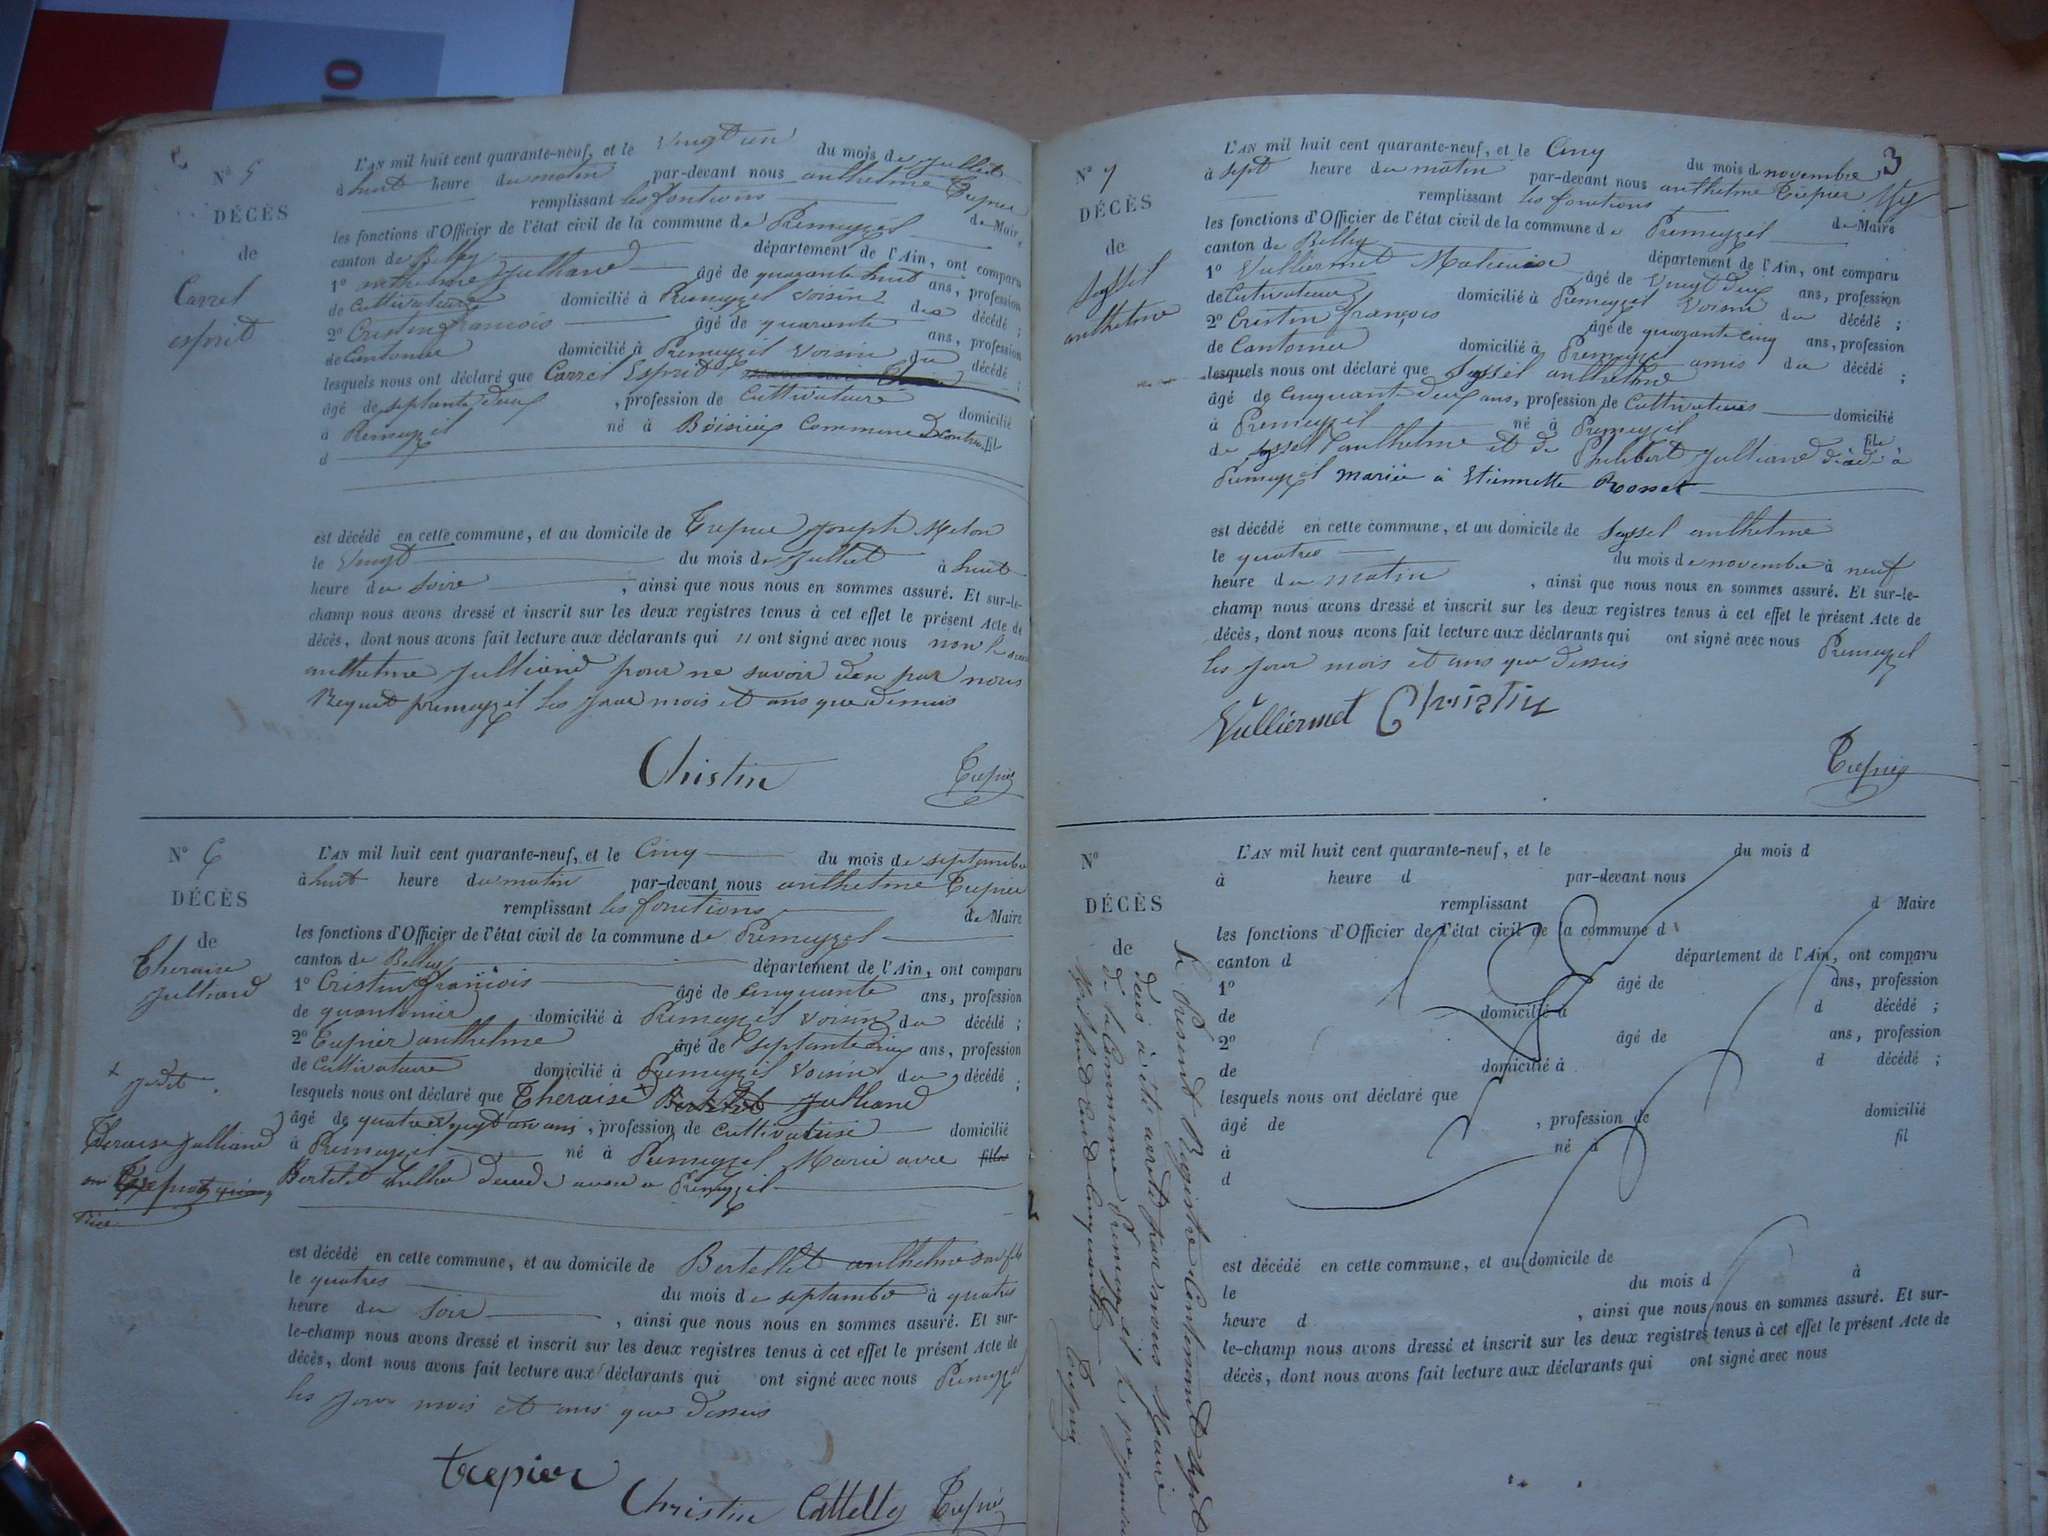 N° 5
DÉCÈS
de
Carrel
esprit
L'AN mil huit cent quarante-neuf, et le Vingt un du mois de Juillet
à huit heure du matin par-devant nous anthelme Trepier
remplissant les fontions de Maire
les fonctions d'Officier de l'état civil de la commune de Premeyzel
canton de Belley département de l'Ain, ont comparu
1° anthelme Julliand âgé de quarante huit ans, profession
de Cultivateure domicilié à Premeyzel voisin du décédé ;
2° Cristin francois âgé de quarante ans, profession
de Cantonier domicilié à Premeyzel voisin du décédé ;
lesquels nous ont déclaré que Carrel Esprit
âgé de septante deux , profession de Cultivateure domicilié
à Premeyzel né à Commune de fil
d
est décédé en cette commune, et au domicile de Trepier Joseph Melon
le Vingt du mois de Juillet à huit
heure du soire , ainsi que nous nous en sommes assuré. Et sur-le-
champ nous avons dressé et inscrit sur les deux registres tenus à cet effet le présent Acte de
décès, dont nous avons fait lecture aux déclarants qui n ont signé avec nous non
anthelme Julliand pour ne savoir den par nous
Requit premeyzel les Jour mois et ans que dessus
Christin Trepier
N° 6
DÉCÈS
de
Theraise
Julliand
+ Jedit
Theraise Julliand
L'AN mil huit cent quarante-neuf, et le Cinq du mois de septambre
à huit heure du matin par-devant nous anthelme Trepier
remplissant les fonctions de Maire
les fonctions d'Officier de l'état civil de la commune de Premeyzel
canton de Belley département de l'Ain, ont comparu
1° Cristin francois âgé de cinquante ans, profession
de quantonier domicilié à Premeyzel voisin du décédé ;
2° Trepier anthelme âgé de septante ans, profession
de Cultivateure domicilié à Premeyzel voisin du décédé ;
lesquels nous ont déclaré que Theraise Julliand
âgé de quatre vingt ans, profession de cultivatrise domicilié
à Premeyzel né à Premeyzel Marie avec
Bertelet a Premeyzel
est décédé en cette commune, et au domicile de Bertellet anthelme son fils
le quatres du mois de septambre à quatres
heure du soir , ainsi que nous nous en sommes assuré. Et sur-
le-champ nous avons dressé et inscrit sur les deux registres tenus à cet effet le présent Acte de
décès, dont nous avons fait lecture aux déclarants qui ont signé avec nous Premeyzel
les jour mois et ans que dessus
trepier
Christin Cattelly Trepier
3
N° 7
DÉCÈS
de
Seyssel
anthelme
L'AN mil huit cent quarante-neuf, et le Cinq du mois de novembre
à sept heure du matin par-devant nous anthelme Trepier
remplissant les fonctions de Maire
les fonctions d'Officier de l'état civil de la commune de Premeyzel
canton de Belley département de l'Ain, ont comparu
1° Vulliermet âgé de Vingt deux ans, profession
de Cutivateur domicilié à Premeyzel Voisin du décédé ;
2° Cristin françois âgé de quarante cinq ans, profession
de Cantonier domicilié à Premeyzel amis du décédé ;
lesquels nous ont déclaré que Seyssel anthelme
âgé de cinquant deux ans, profession de Cultivateur domicilié
à Premeyzel né à Premeyzel fils
de seyssel anthelme et de Philibert Julliand décédé à
Premeyzel mariée a Etiennette Rosset
est décédé en cette commune, et au domicile de Seyssel anthelme
le quatres du mois de novembre à neuf
heure du matin , ainsi que nous nous en sommes assuré. Et sur-le-
champ nous avons dressé et inscrit sur les deux registres tenus à cet effet le présent Acte de
décès, dont nous avons fait lecture aux déclarants qui ont signé avec nous Premeyzel
les Jour mois et ans que dessus
Vulliermet Christin
Trepier
N°
DÉCÈS
de
L'AN mil huit cent quarante-neuf, et le du mois d
à heure d par-devant nous
remplissant d Maire
les fonctions d'Officier de l'état civil de la commune d
canton d département de l'Ain, ont comparu
1° âgé de ans, profession
de domicilié à d décédé ;
2° âgé de ans, profession
de domicilié à d décédé ;
lesquels nous ont déclaré que
âgé de , profession de domicilié
à né à fil
d
est décédé en cette commune, et au domicile de
le du mois d à
heure d , ainsi que nous nous en sommes assuré. Et sur-
le-champ nous avons dressé et inscrit sur les deux registres tenus à cet effet le présent Acte de
décès, dont nous avons fait lecture aux déclarants qui ont signé avec nous
Le Present Registre Contenant sept
dues à été arreté par nous Maire
de la Commune Premeyzel le
Mil huit cent cinquante Trepier